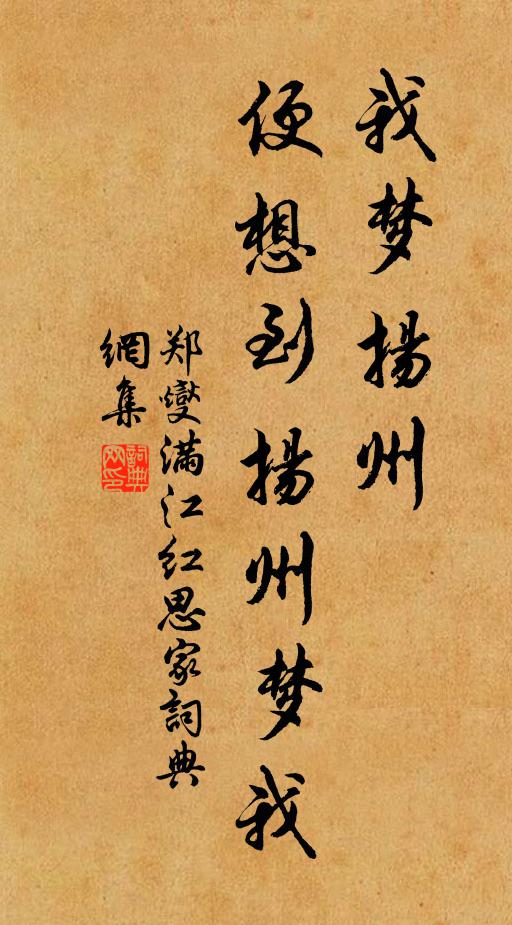 我梦揚州
便想到揚州梦我
郑燮满江红思家詞典
網集
詞典網印